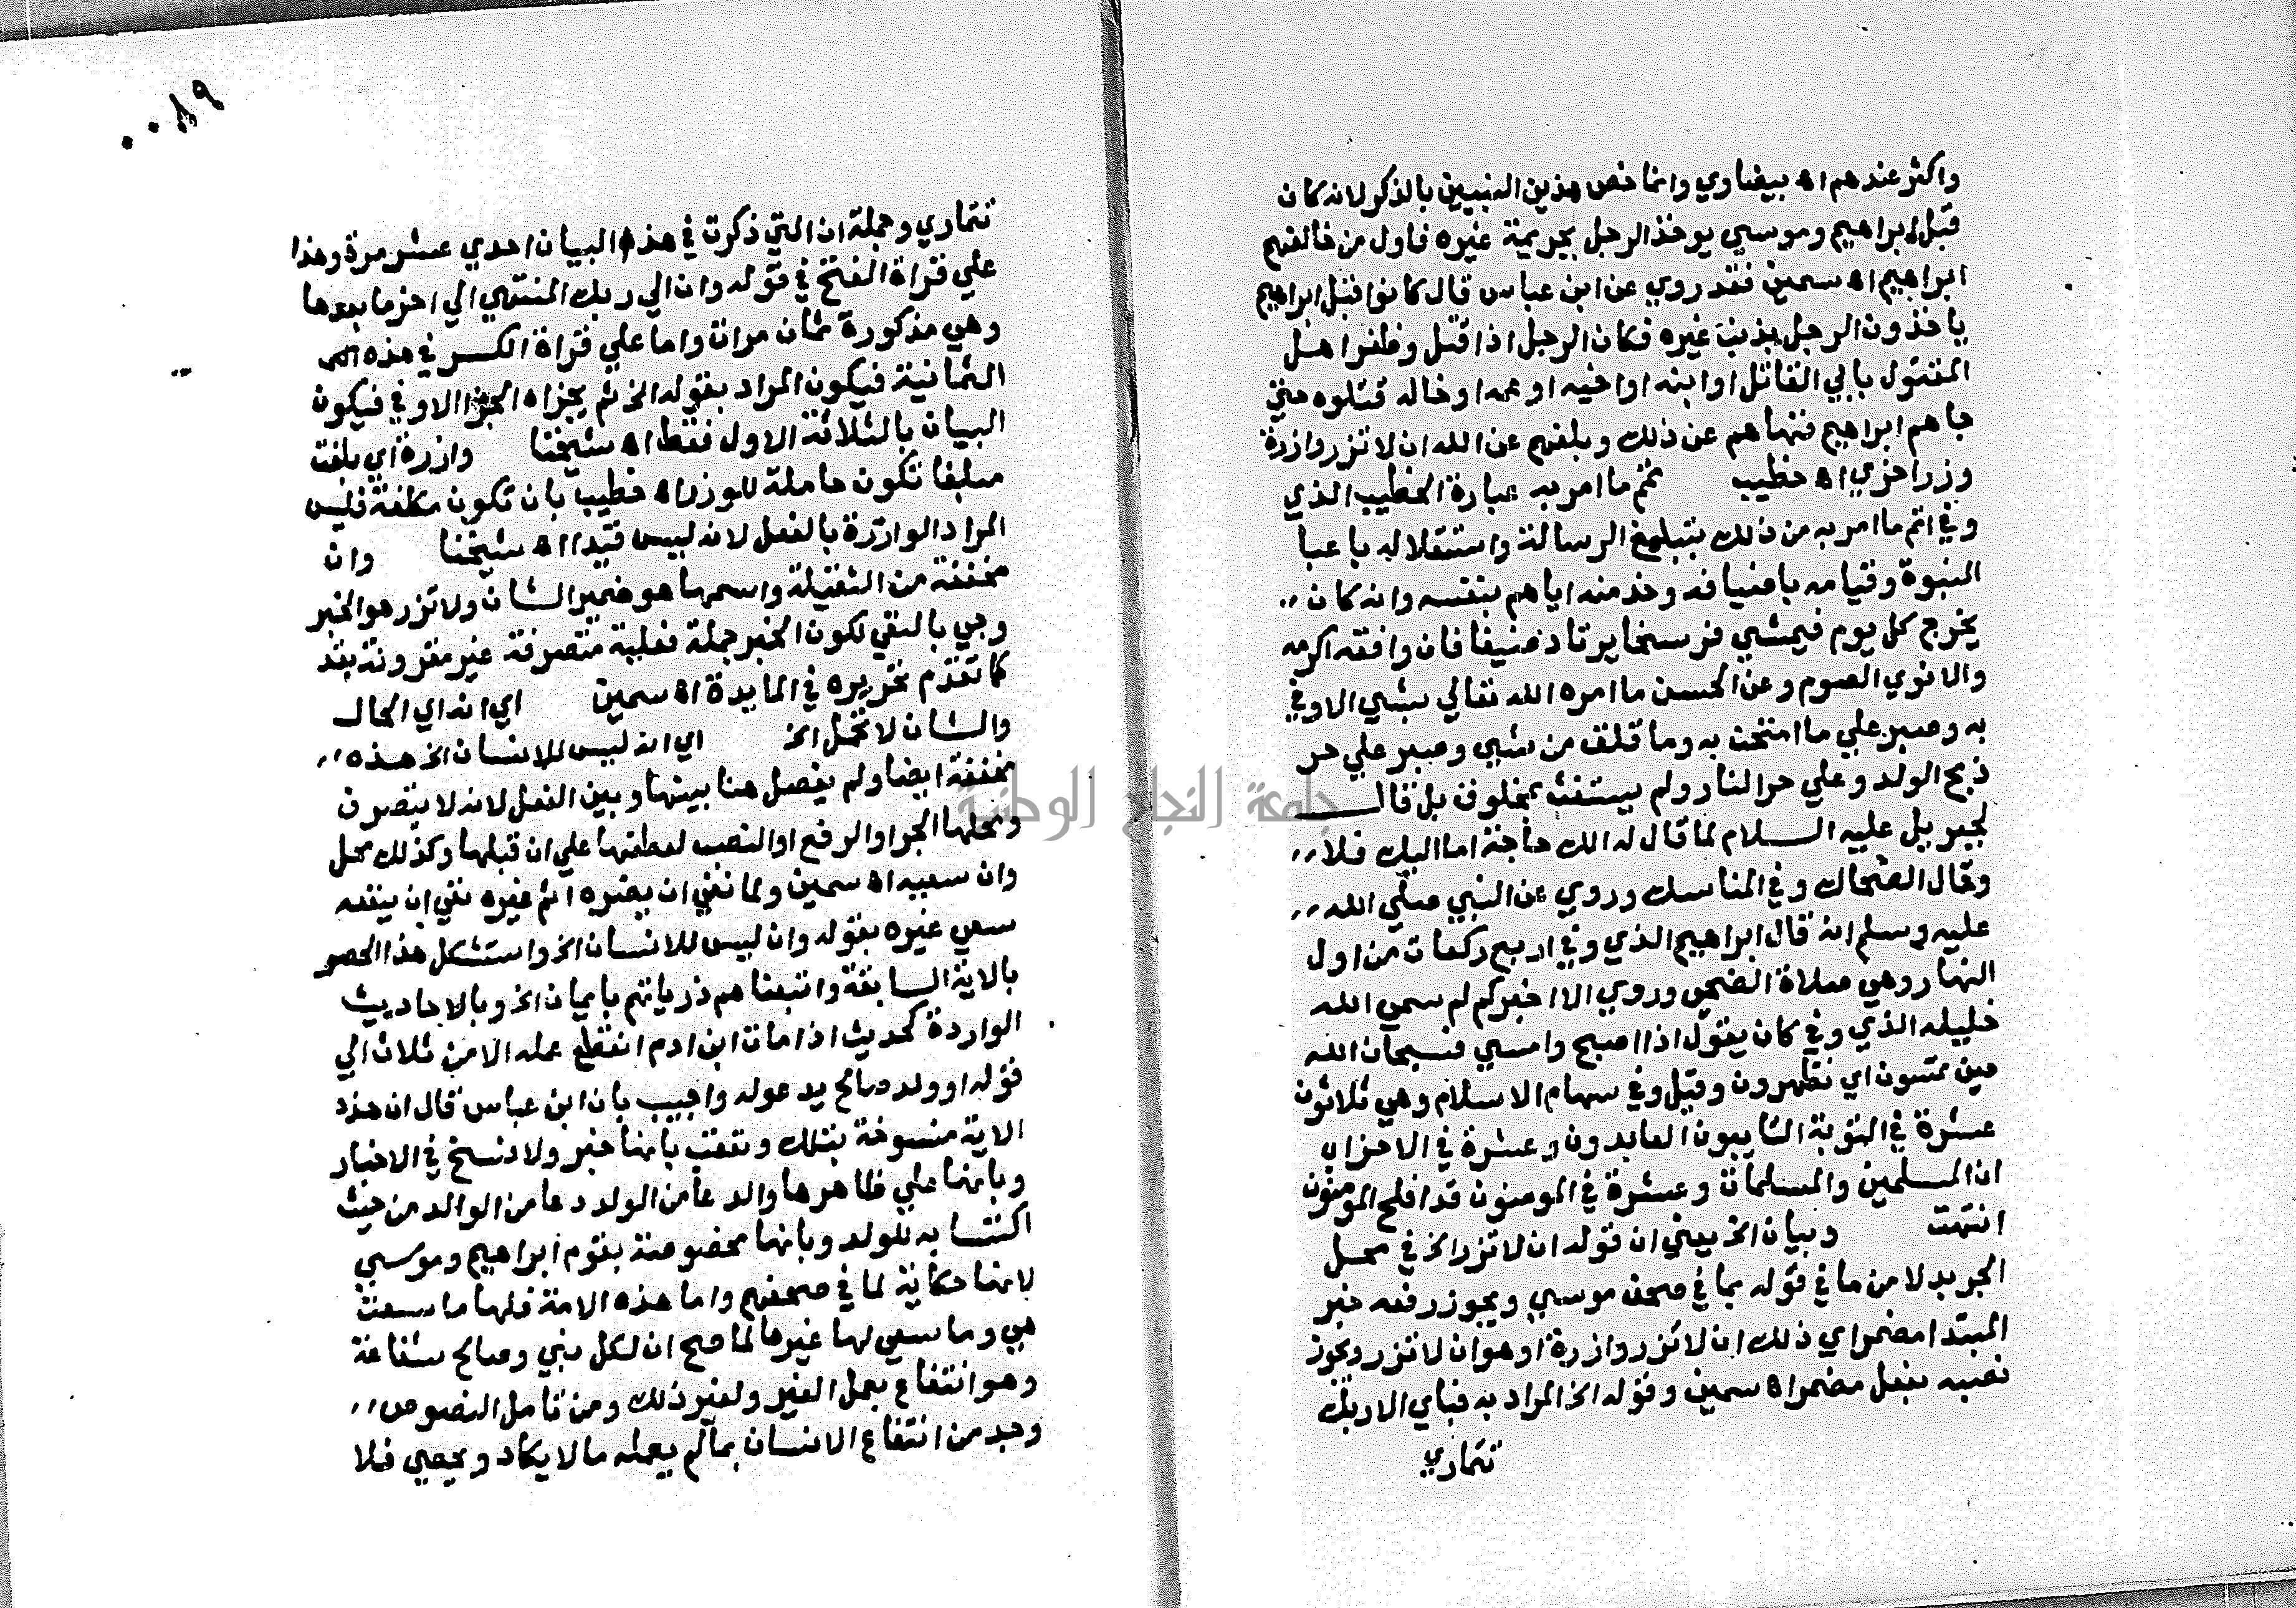 واكثر عندهم اه بيضاوي وانما خص هذين النبيين بالذكر لانه كان
قبل ابراهيم وموسي يوخذ الرجل بجريمة غيره فاول من خالفهم
ابراهيم اه سمين فقد روي عن ابن عباس قال كانوا قبل ابراهيم
ياخذون الرجل بذنب غيره فكان الرجل اذا قتل وظفر اهل
المقتول بابي القاتل او ابنه او اخيه او عمه او خاله قتلوه حتي
جاهم ابراهيم فنهاهم عن ذلك وبلغهم عن الله ان لا تزر وازرة
وزر اخري اه خطيب تمم ما امر به عبارة الخطيب الذي
وفي اتم ما امر به من ذلك بتبليغ الرسالة واستقلاله باعبا
النبوة وقيامه باضيافه وخدمته اياهم بنفسه وانه كان
يخرج كل يوم فيمشي فرسخا يرتاد ضيفا فان وافقه اكرمه
والا نوي الصوم وعن الحسن ما امره الله تعالي بشي الا وفي
به وصبر علي ما امتحن به وما قلق من شي وصبر علي حر
ذبح الولد وعلي حر النار ولم يستغث بمخلوق بل قال
لجبريل عليه السلام لما قال له الك حاجة اما اليك فلا
وقال الضحاك وفي المناسك وروي عن النبي صلي الله
عليه وسلم انه قال ابراهيم الذي وفي اربع ركعات من اول
النهار وهي صلاة الضحي وروي الا اخبركم لم سمي الله
خليله الذي وفي كان يقول اذا اصبح وامسي فسبحان الله
حين تمسون اي تظهرون وقيل وفي سهام الاسلام وهي ثلاثون
عشرة في التوبة التايبون العابدون وعشرة في الاحزاب
ان المسلمين والمسلمات وعشرة في المومنون قد افلح المومنون
انتهت وبيان الخ يعني ان قوله ان لا تزر الخ في محل
الجر بدلا من ما في قوله بما في صحف موسي ويجوز رفعه خبر
المبتدا مضمر اي ذلك ان لا تزر وازرة او هو ان لا تزر ويجوز
نصبه بفعل مضمر اه سمين وقوله الخ المراد به فباي الا ربك
تتماري
٠٠٨٩
تتماري وجملة ان التي ذكرت في هذه البيان احدي عشر مرة وهذا
علي قراة الفتح في قوله وان الي ربك المنتهي الي اخر ما بعدها
وهي مذكورة ثمان مرات واما علي قراة الكسر في هذه
الثمانية فيكون المراد بقوله الخ ثم يجزاه الجزا الاوفي فيكون
البيان بالثلاثة الاول فقط اه شيخنا وازرة اي بلغت
مبلغا تكون حاملة للوزر اه خطيب بان تكون مكلفة فليس
المراد الوازرة بالفعل لانه ليس قيدا اه شيخنا وان
مخففة من الثقيلة واسمها هو ضمير الشان ولا تزر هو الخبر
وجي بالنفي لكون الخبر جملة فعلية متصرفة غير مقرونة بقد
كما تقدم تحريره في المايدة اه سمين اي انه اي الحال
والشان لا تحمل الخ اي انه ليس للانسان الخ هذه
مخففة ايضا ولم يفصل هنا بينها وبين الفعل لانه لا يتصرف
ومحلها الجر او الرفع او النصب لعطفها علي ان قبلها وكذلك محل
وان سعيه اه سمين ولما نفي ان يضره اثم غيره نفي ان ينفعه
سعي غيره بقوله وان ليس للانسان الخ واستشكل هذا الحصر
بالاية السابقة واتبعناهم ذرياتهم بايمان الخ وبالاحاديث
الواردة كحديث اذا مات ابن ادم انقطع عمله الا من ثلاث الي
قوله او ولد صالح يدعو له واجيب بان ابن عباس قال ان هذه
الاية منسوخة بتلك وتعقب بانها خبر ولا نسخ في الاخبار
وبانها علي ظاهرها والدعا من الولد دعا من الوالد من حيث
اكتسابه للولد وبانها مخصوصة بقوم ابراهيم وموسي
لانها حكاية لما في صحفهم واما هذه الامة فلها ما سعت
هي وما سعي لها غيرها لما صح ان لكل نبي وصالح شفاعة
وهو انتفاع بعمل الغير ولغير ذلك ومن تامل النصوص
وجد من انتفاع الانسان بما لم يعمله ما لا يكاد ويحصي فلا
جامعة النجاح الوطنية